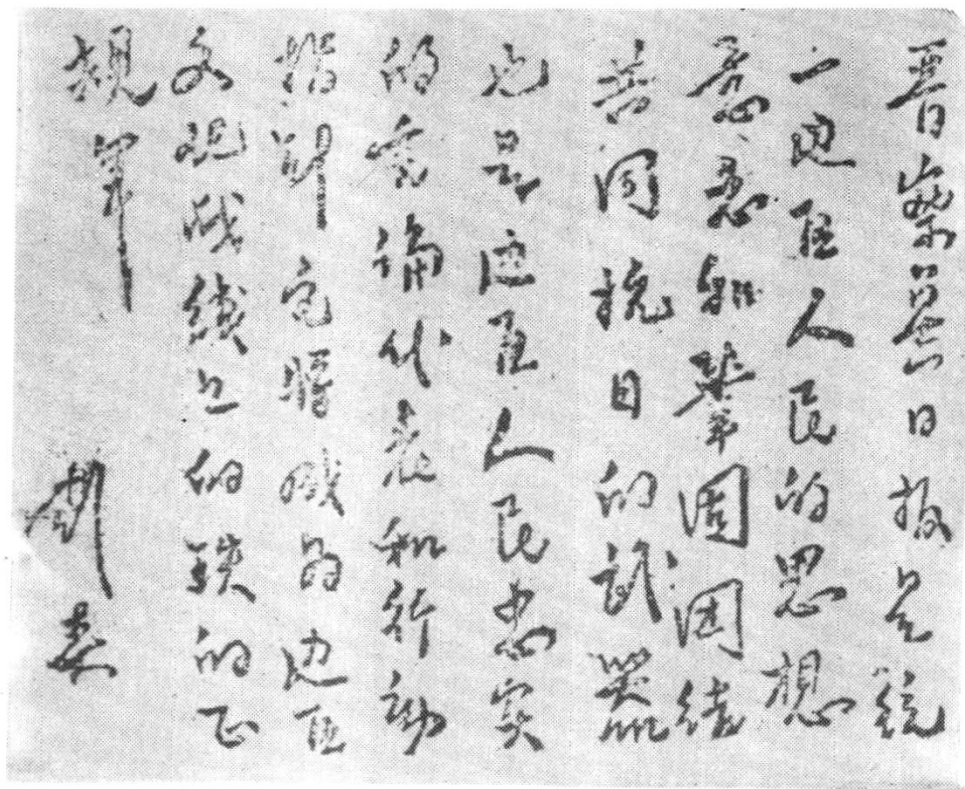 晋察冀日报是统
一边区人民的思想
意志和巩固团结
共同抗日的武器
也是边区人民忠实
的言论代表和行动
指针它将成为边区
文化战线上的铁的正
规军